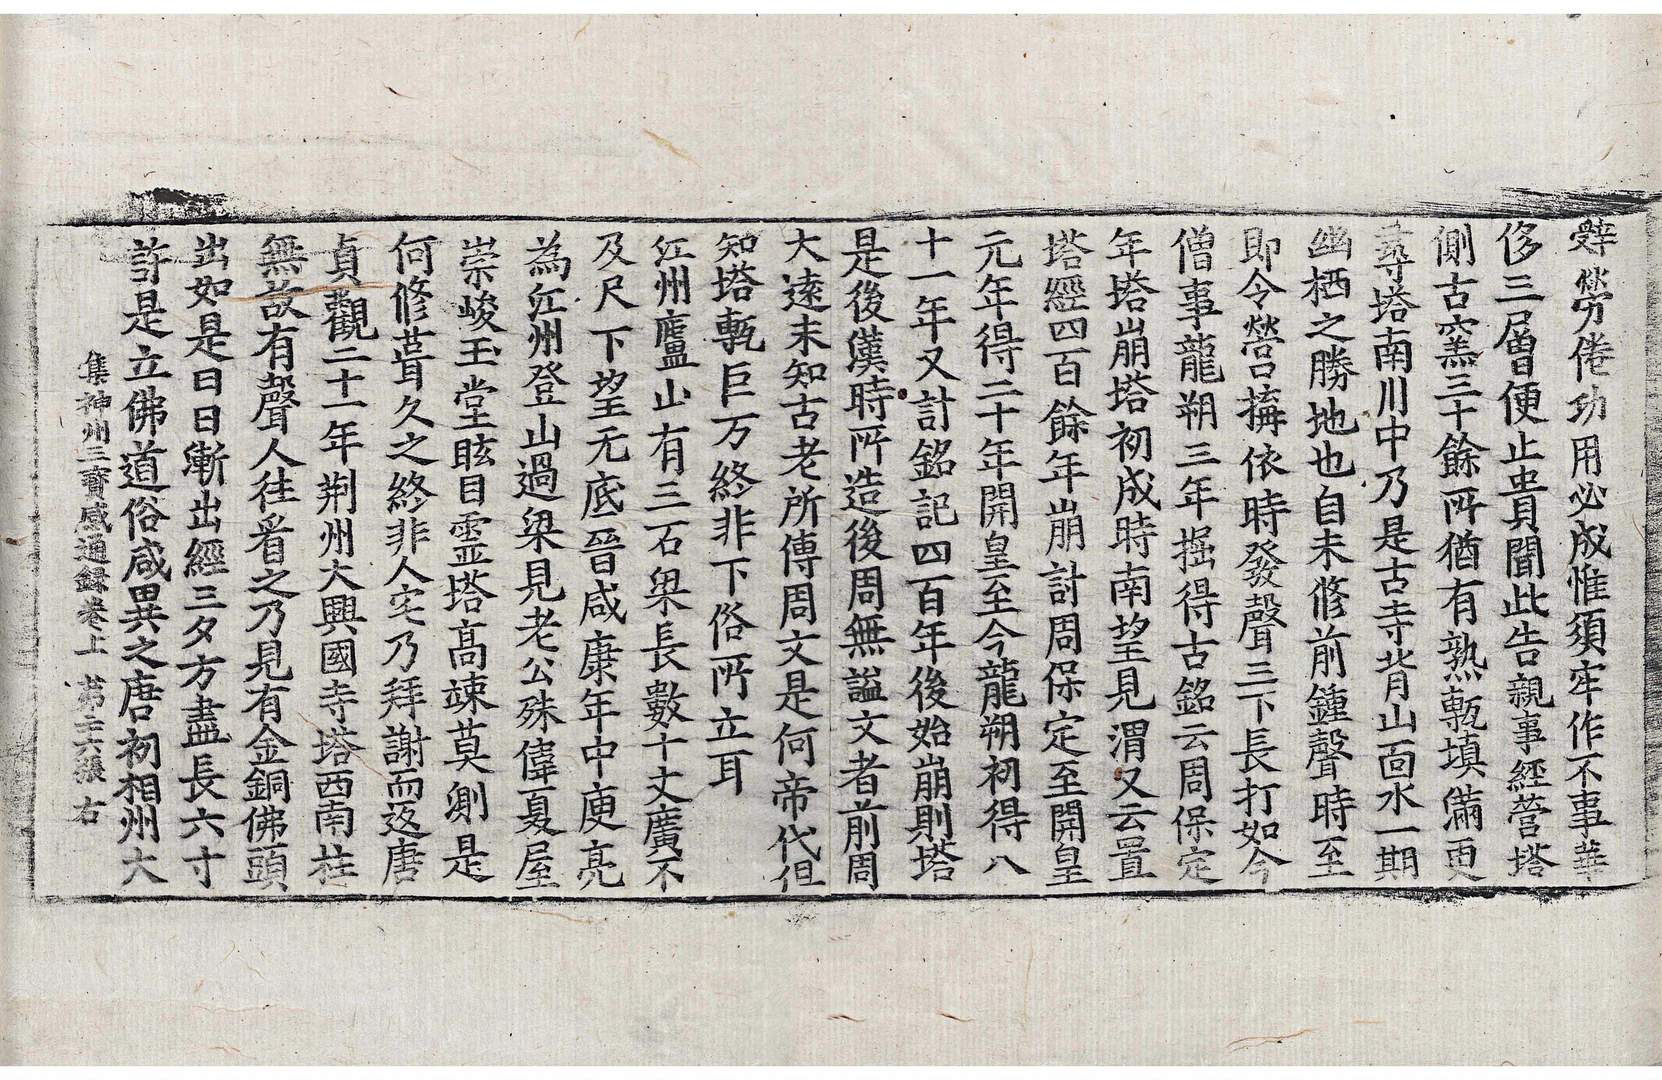 辤勞倦功用必成惟須牢作不事華
侈三層便止貴聞此告親事經營塔
側古窯三十餘所猶有熟甎填滿更
尋塔南川中乃是古寺背山面水一期
幽栖之勝地也自未修前鍾聲時至
即令營搆依時發聲三下長打如今
僧事龍朔三年掘得古銘云周保定
年塔崩塔初成時南望見渭又云置
塔經四百餘年崩計周保定至開皇
元年得二十年開皇至今龍朔初得八
十一年又計銘記四百年後始崩則塔
是後漢時所造後周無謚文者前周
大遠未知古老所傳周文是何帝代但
知塔甎巨万終非下俗所立耳
江州廬山有三石梁長數十丈廣不
及尺下望无底晉咸康年中庾亮
為江州登山過梁見老公殊偉夏屋
崇峻玉堂眩目靈塔高竦莫測是
何修葺久之終非人宅乃拜謝而返唐
貞觀二十一年荆州大興國寺塔西南柱
無故有聲人往看之乃見有金銅佛頭
出如是日日漸出經三夕方盡長六寸
許是立佛道俗咸異之唐初相州大
集神州三寶感通録卷上 苐二十六張 右